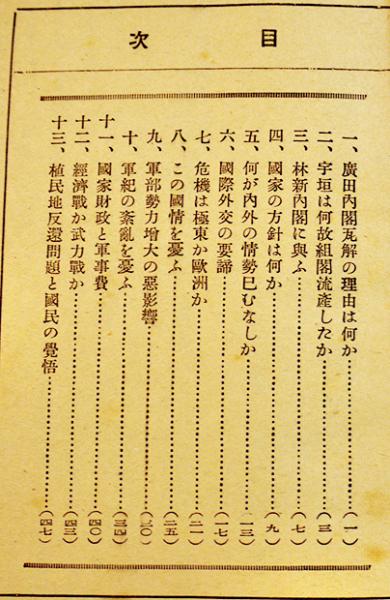 目次
一、廣田內閣瓦解の理由は何か…(一)
二、宇垣は何故組閣流產したか…(三)
三、林新內閣に與ふ…(七)
四、國家の方針は何か…(九)
五、何が內外の情勢已むなしか…(一三)
六、國際外交の要諦…(一七)
七、危機は極東か歐洲か…(二一)
八、この國情を憂ふ…(二五)
九、軍部勢力增大の惡影響…(三〇)
十、軍紀の紊亂を憂ふ…(三四)
十一、國家財政と軍事費…(四〇)
十二、經濟戰か武力戰か…(四三)
十三、植民地反還問題と國民の覺悟…(四七)